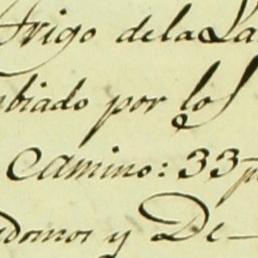 Trigo dela La
biado por los
Camino: 33 p
domos y De-